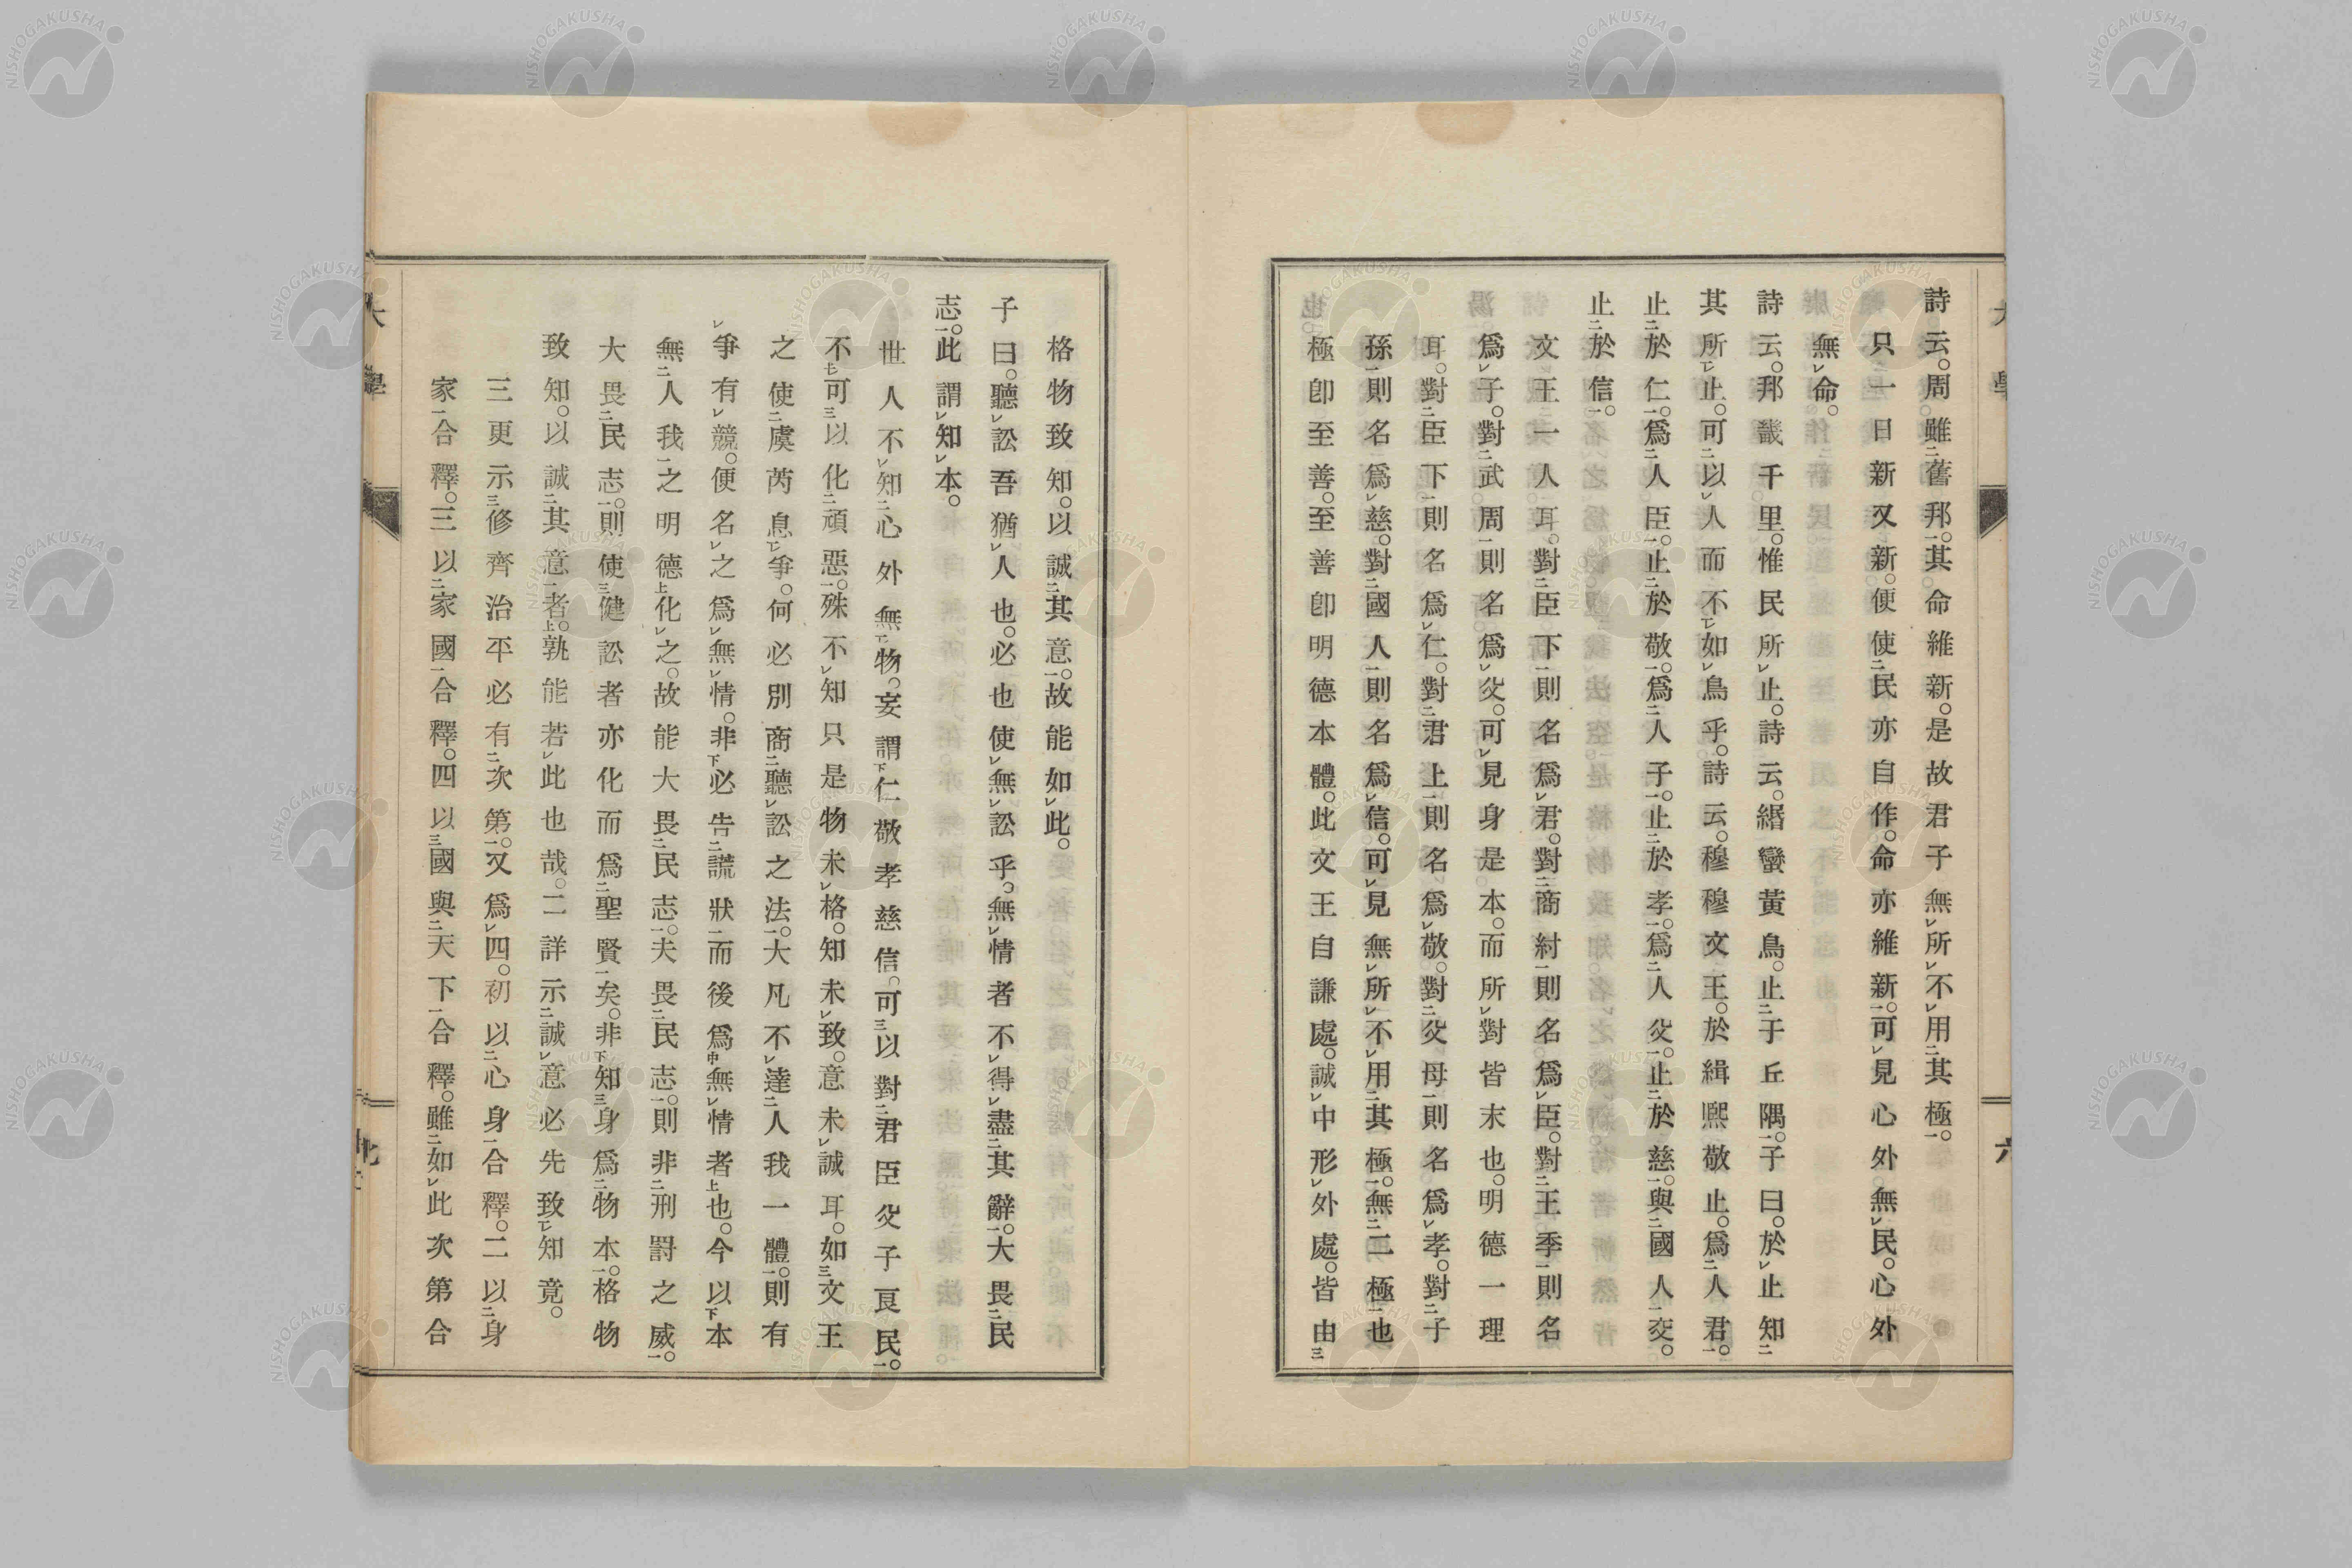 詩云。周雖舊邦。其命維新。是故君子無所不用其極。
只一日新又新。便使民亦自作。命亦維新。可見心外無民。心外
無命。
詩云。邦畿千里。惟民所止。詩云。緡蠻黃鳥。止于丘隅。子曰。於止知
其所止。可以人而不如鳥乎。詩云。穆穆文王。於緝熙敬止。爲人君。
止於仁。爲人臣。止於敬。爲人子。止於孝。爲人父。止於慈。與國人交。
止於信。
文王一人耳。對臣下則名爲君。對商紂則名爲臣。對王季則名
爲子。對武周則名爲父。可見身是本。而所對皆末也。明德一理
耳。對臣下則名爲仁。對君上則名爲敬。對父母則名爲孝。對子
孫則名爲慈。對國人則名爲信。可見無所不用其極。無二極也
極卽至善。至善卽明德本體。此文王自謙處。誠中形外處。皆由
格物致知。以誠其意。故能如此。
子曰。聽訟吾猶人也。必也使無訟乎。無情者不得盡其辭。大畏民
志。此謂知本。
世人不知心外無物。妄謂仁敬孝慈信。可以對君臣父子良民。
不可以化頑惡。殊不知只是物未格。知未致。意未誠耳。如文王
之使虞芮息爭。何必別商聽訟之法。大凡不達人我一體。則有
爭有競。便名之爲無情。非必告謊狀而後爲無情者也。今以本
無人我之明德化之。故能大畏民志。夫畏民志。則非刑罰之威。
大畏民志。則使健訟者亦化而爲聖賢矣。非知身爲物本。格物
致知。以誠其意者。孰能若此也哉。二詳示誠意必先致知竟。
三更示修齊治平必有次第。又爲四。初以心身合釋。二以身
家合釋。三以家國合釋。四以國與天下合釋。雖如此次第合
大學
六